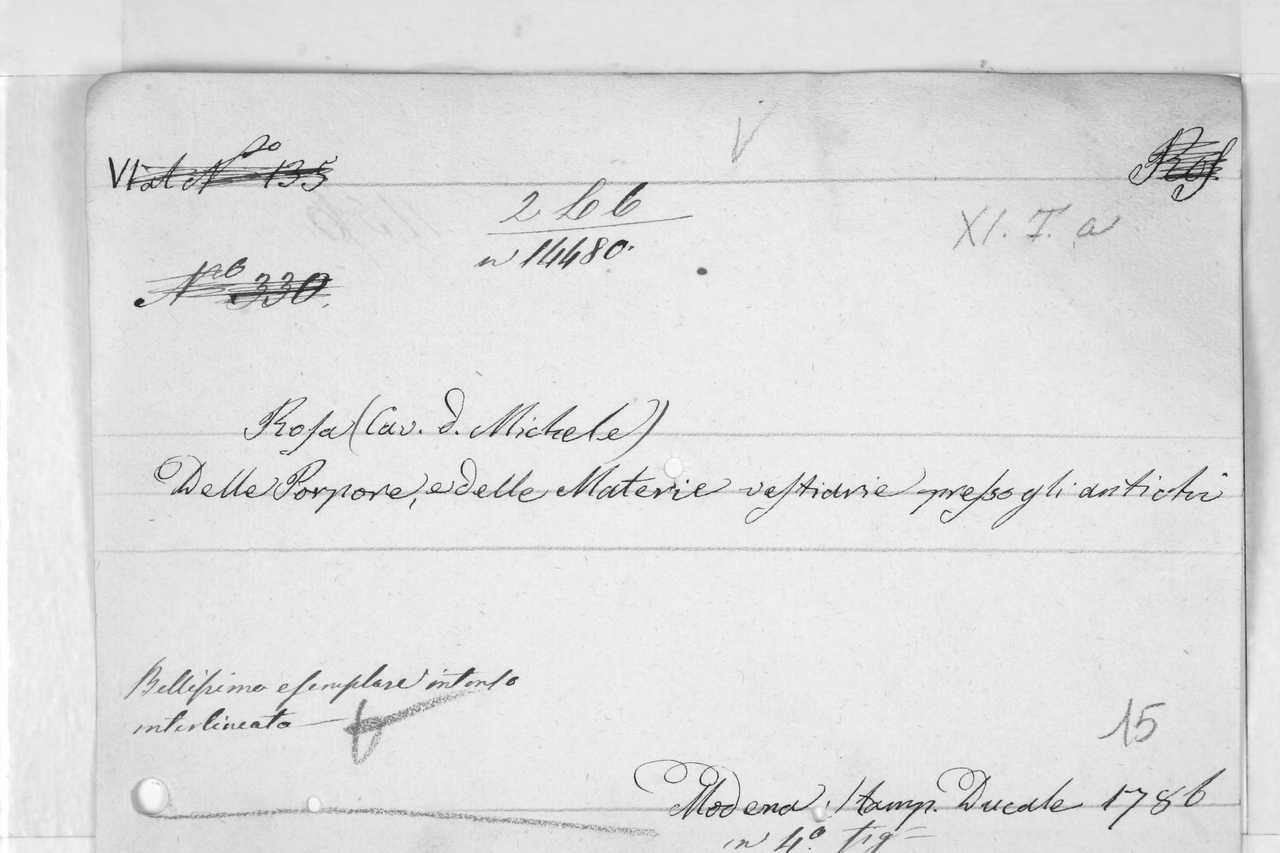 VI at No 135
Ros
2 L 6
XI. T. a
n 14480.
No 330.
Rosa (Cav. d. Michele)
Delle Porpore, e delle Materie vestiarie presso gli antichi
Bellissimo esemplare intonso
interlineato
15
Modena, Stamp. Ducale 1786
in 4.o fig